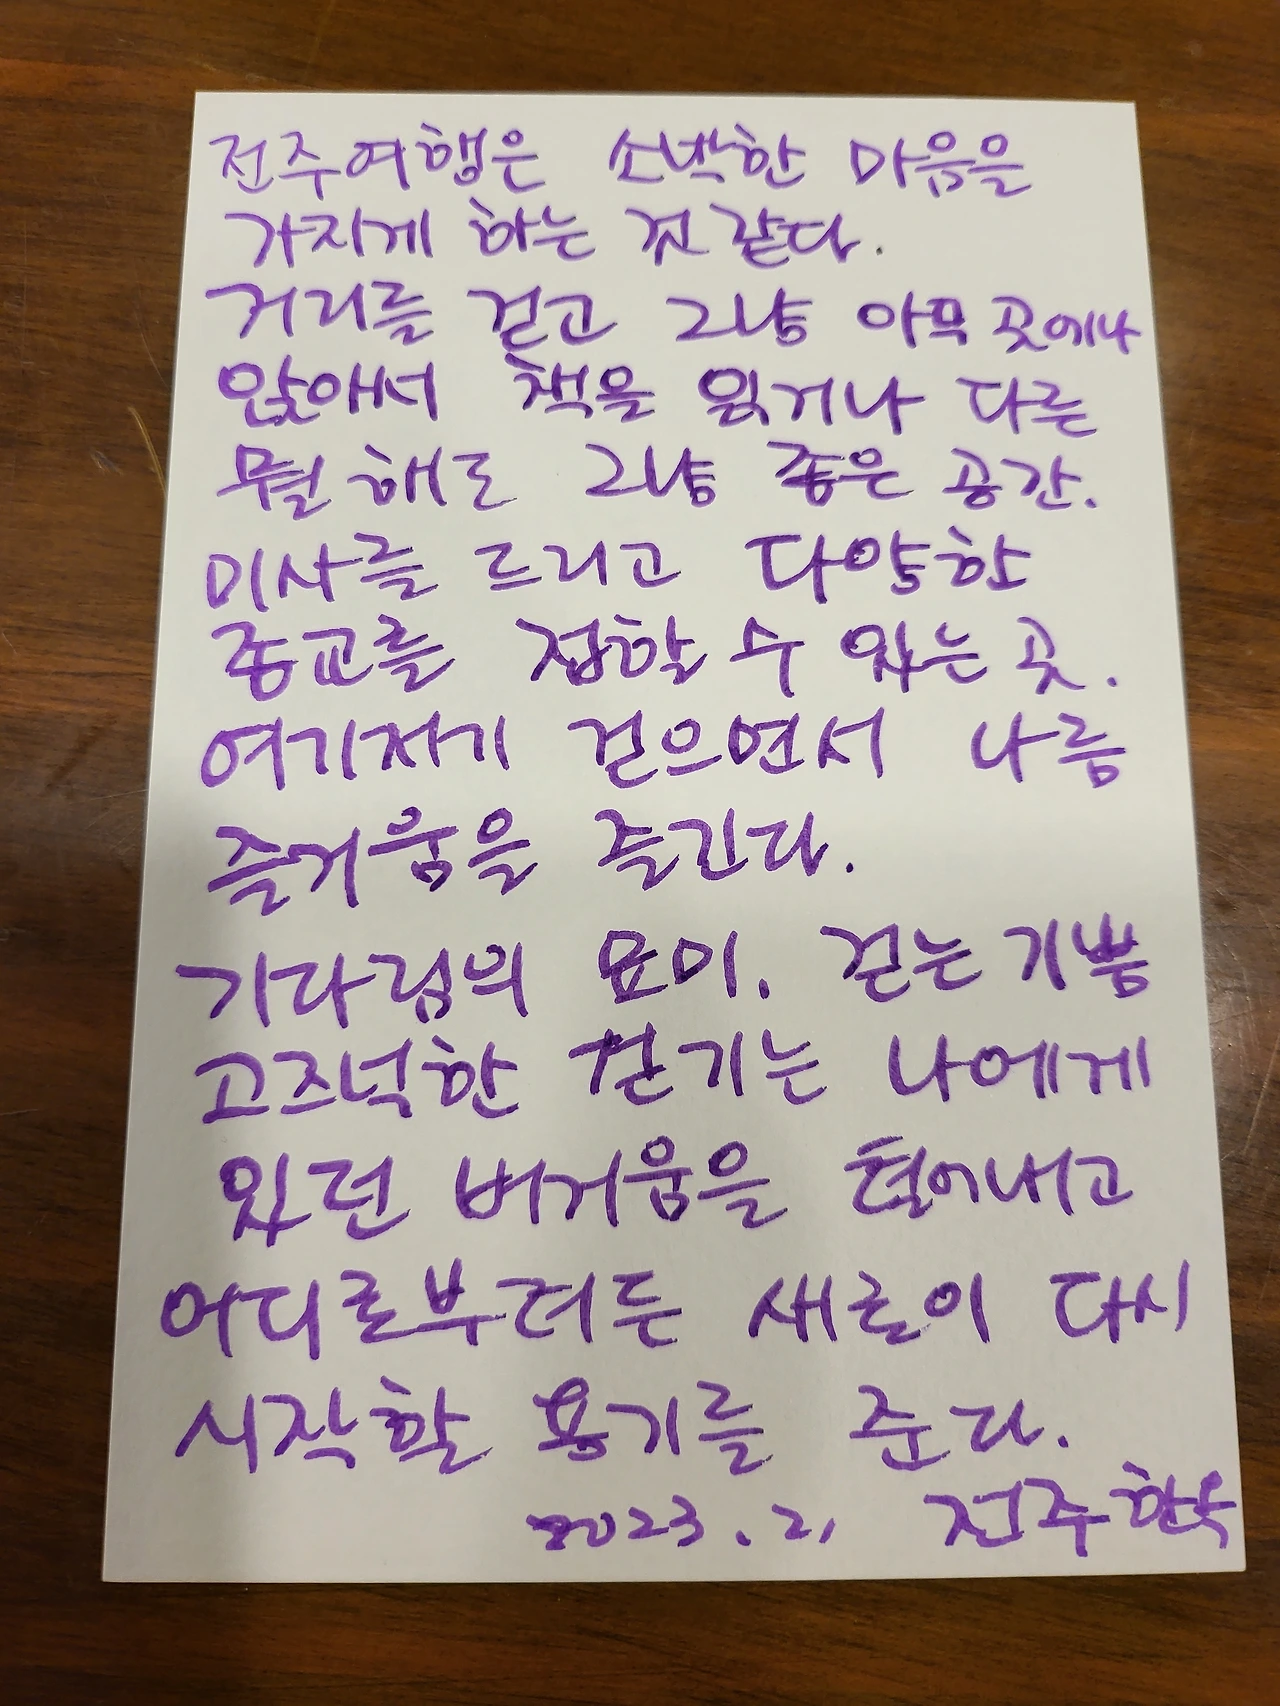 전주여행은 소박한 마음을
가지게 하는 것 같다.
거리를 걷고 그냥 아무 곳에나
앉아서 책을 읽거나 다른
뭘 해도 그냥 좋은 공간.
미사를 드리고 다양한
종교를 접할 수 있는 곳.
여기저기 걸으면서 나름
즐거움을 즐긴다.
기다림의 묘미. 걷는 기쁨
고즈넉한 걷기는 나에게
있던 버거움을 털어내고
어디로부터든 새로이 다시
시작할 용기를 준다.
2023.2, 전주한옥